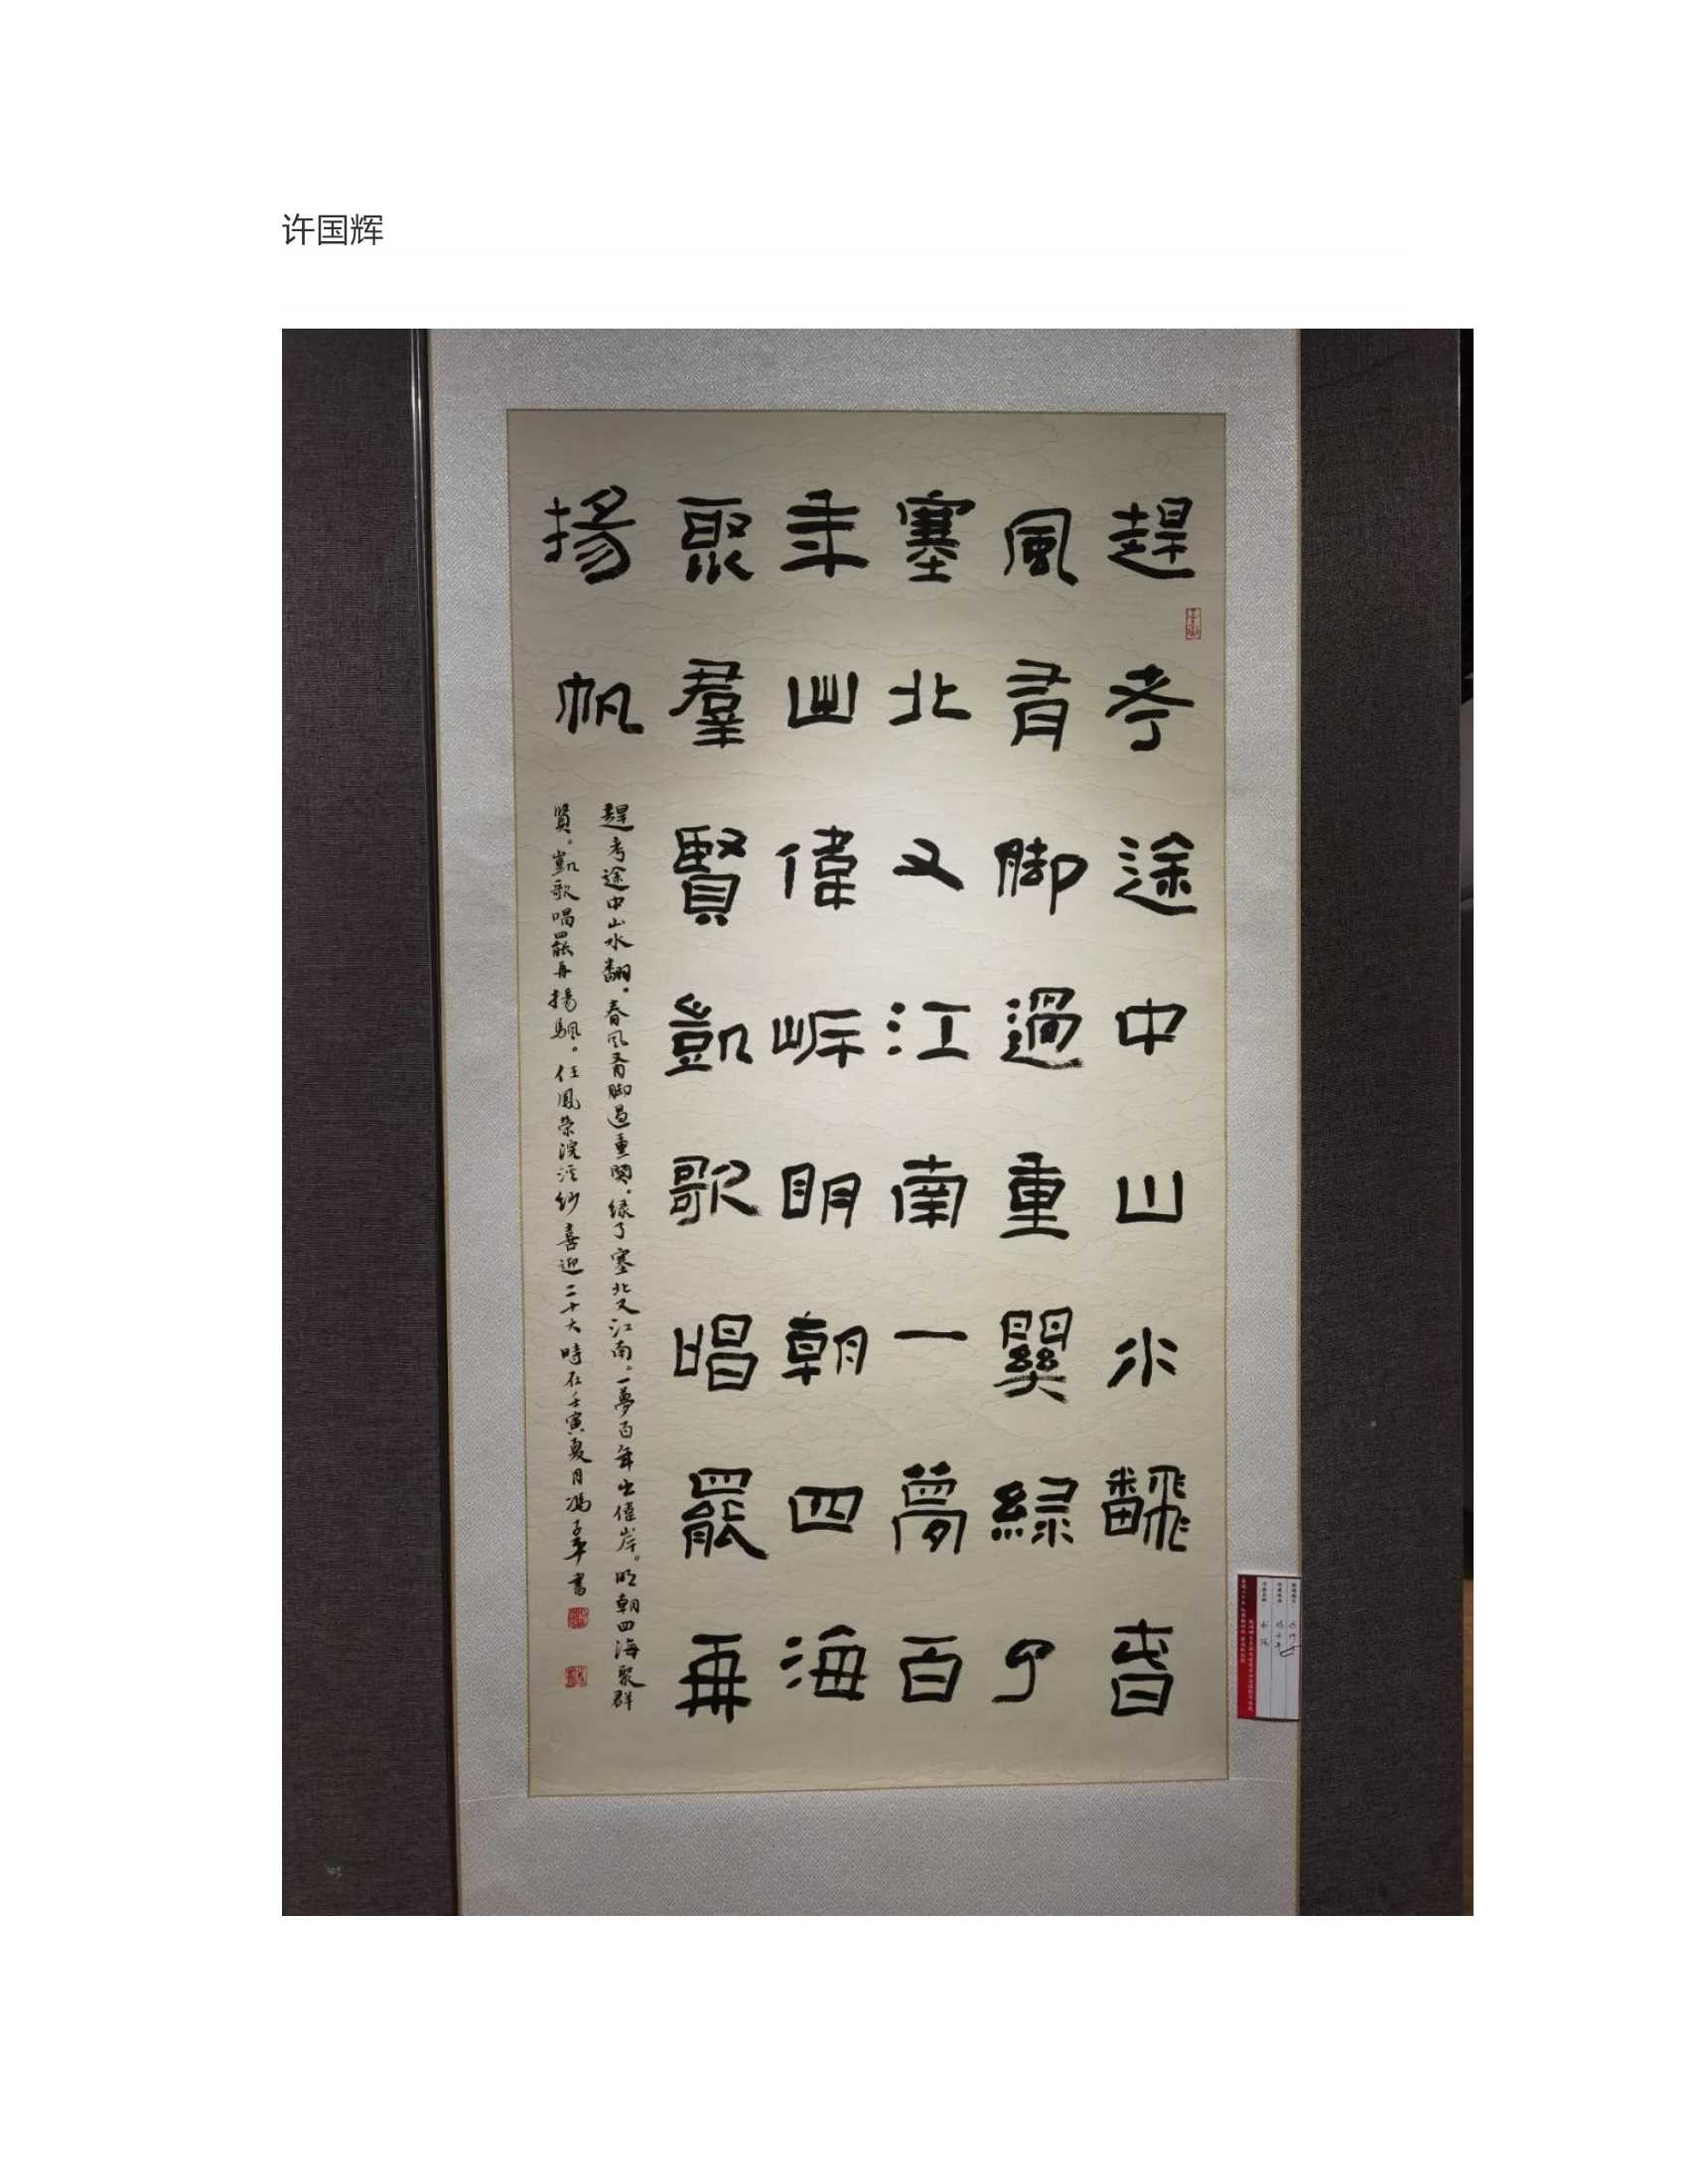 许国辉
趕考途中山水飜春
風有脚過重關綠了
塞北又江南一夢百
年出偉岸明朝四海
聚羣賢凱歌唱罷再
揚帆
趕考途中山水翻。春風有脚過重關。綠了塞北又江南。一夢百年出偉岸。明朝四海聚群
賢。凱歌唱罷再揚帆。任鳳榮浣溪紗喜迎二十大時在壬寅夏月馮子華書